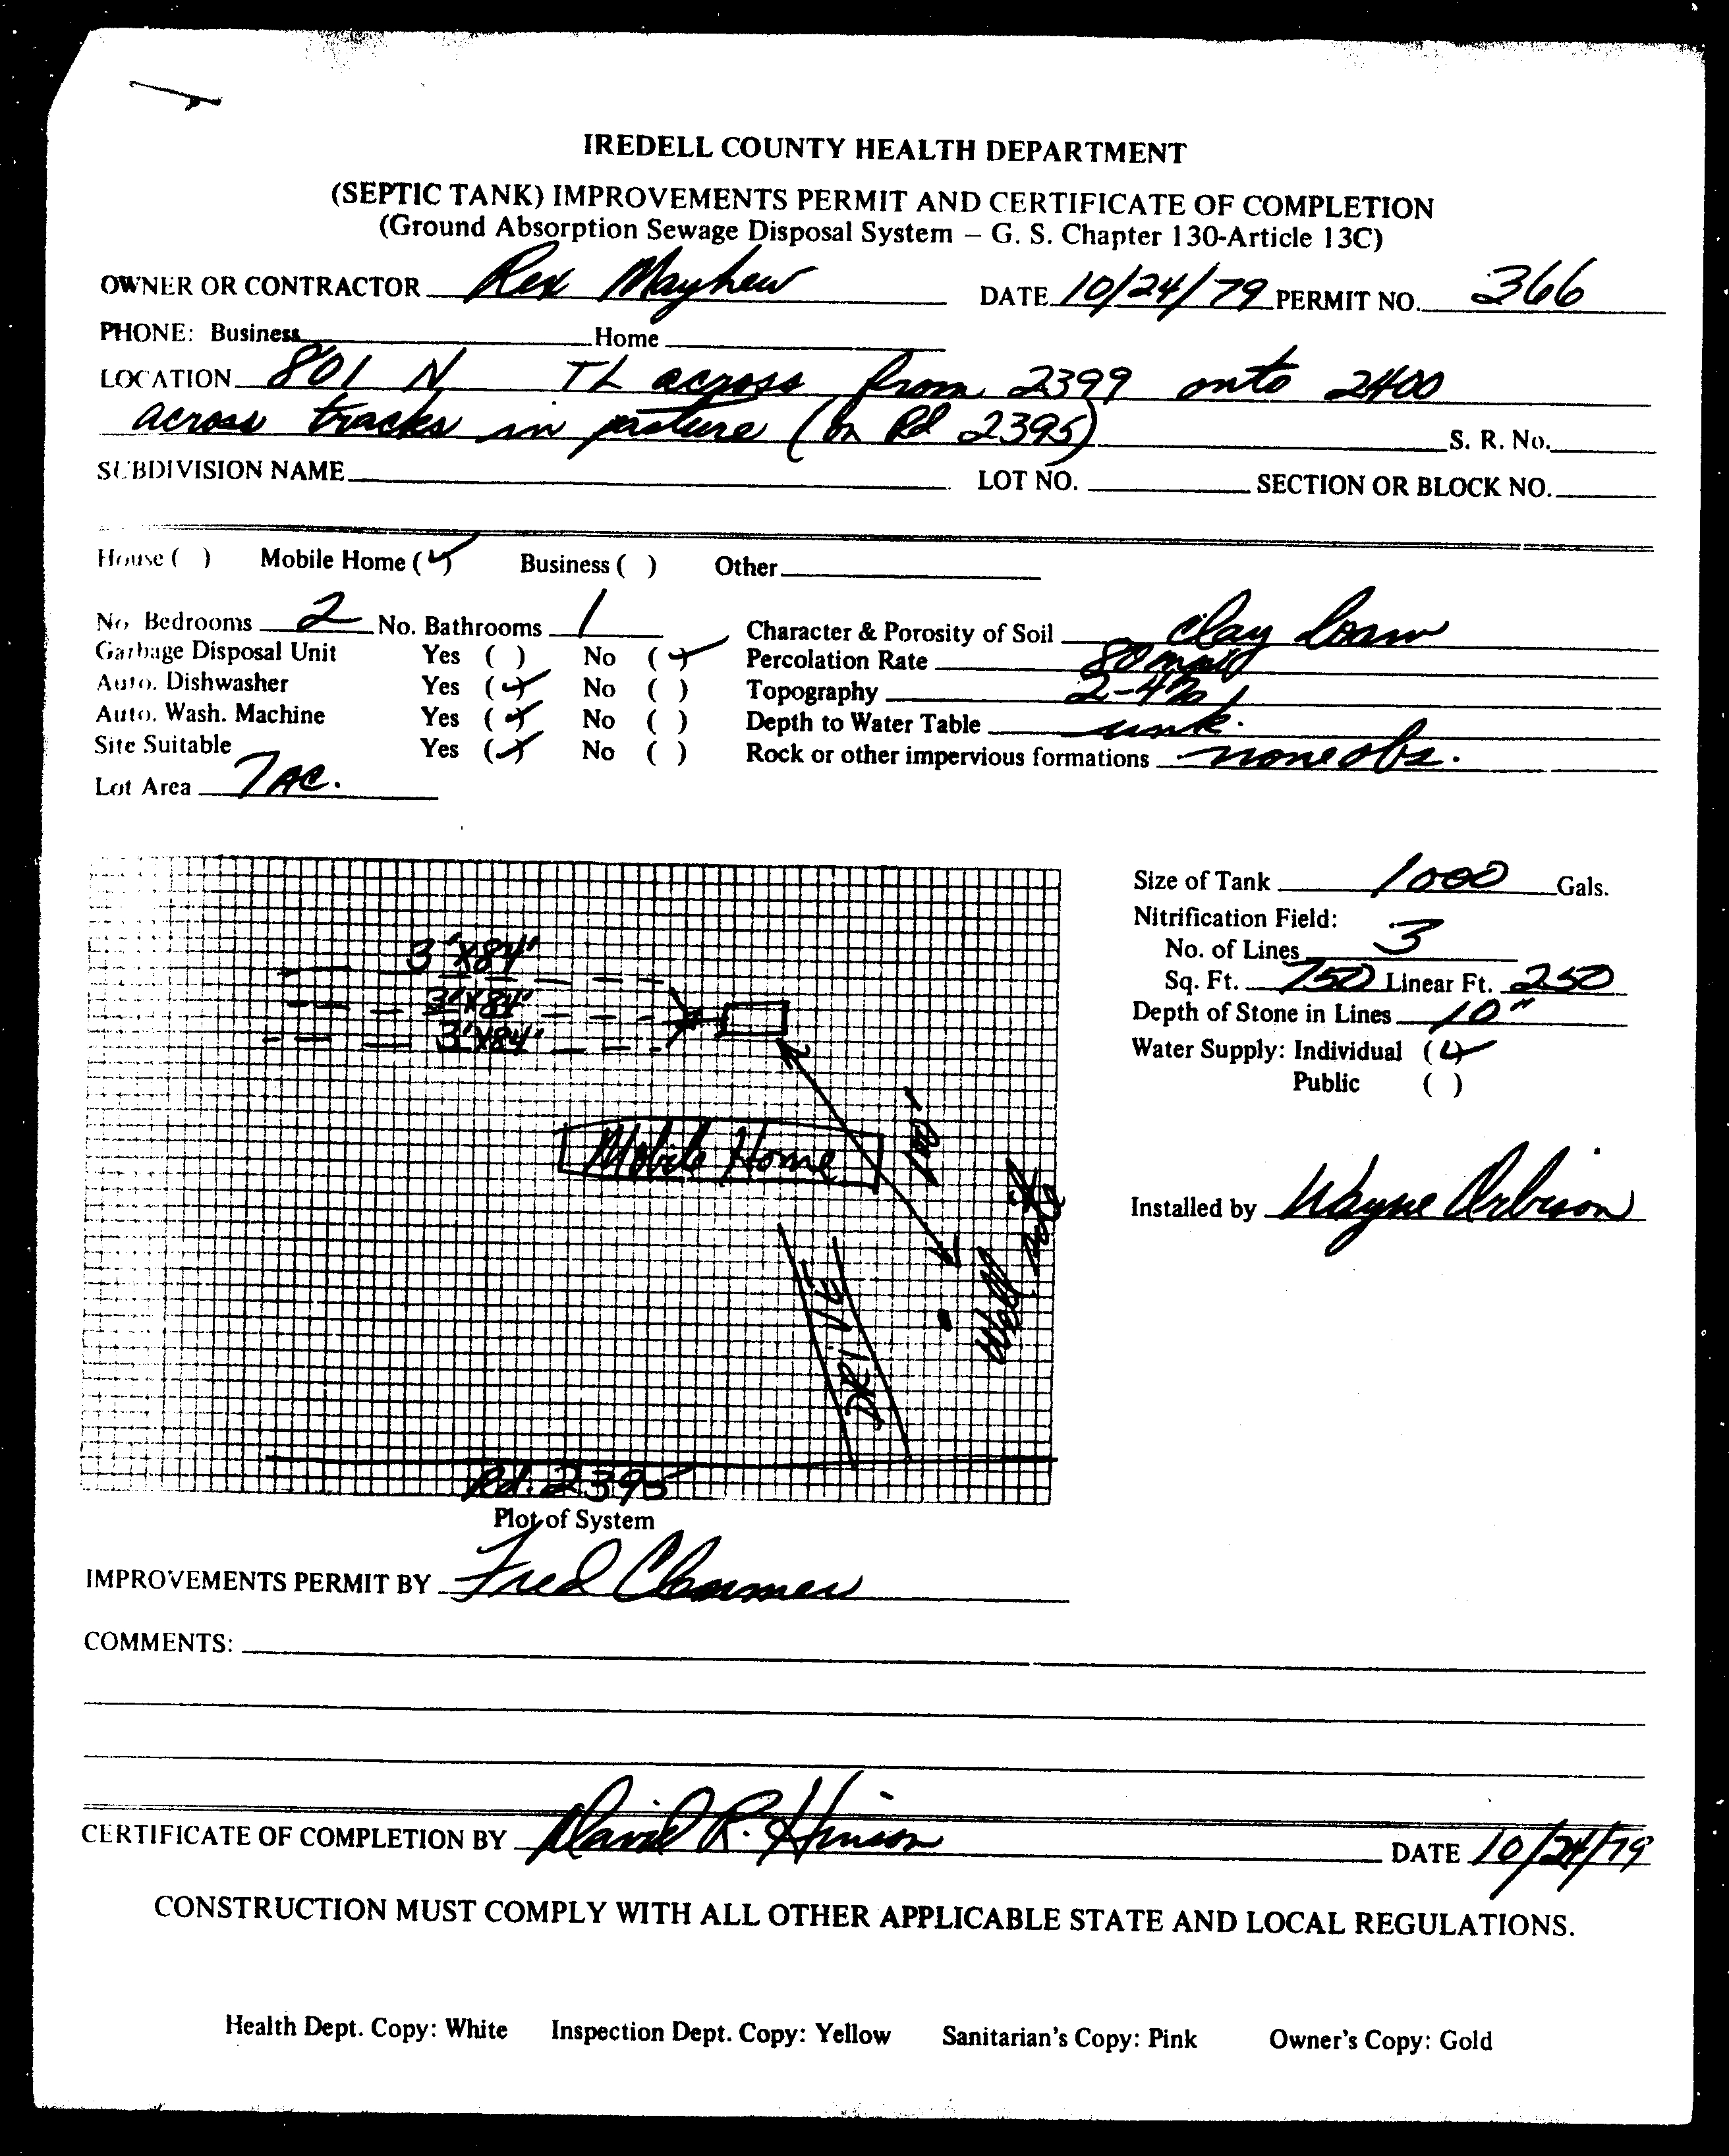 IREDELL COUNTY HEALTH DEPARTMENT
(SEPTIC TANK) IMPROVEMENTS PERMIT AND CERTIFICATE OF COMPLETION
(Ground Absorption Sewage Disposal System – G. S. Chapter 130-Article 13C)
OWNER OR CONTRACTOR Rex Mayhew DATE 10/24/79 PERMIT NO. 366
PHONE: Business Home
LOCATION 801 N TL across from 2399 onto 2400
across tracks in pasture (on Rd 2395) S. R. No.
SUBDIVISION NAME LOT NO. SECTION OR BLOCK NO.
House ( ) Mobile Home (✓) Business ( ) Other
No. Bedrooms 2 No. Bathrooms 1 Character & Porosity of Soil Clay Loam
Garbage Disposal Unit Yes ( ) No (✓) Percolation Rate 80
Auto. Dishwasher Yes (✓) No ( ) Topography 2-4%
Auto. Wash. Machine Yes (✓) No ( ) Depth to Water Table unk.
Site Suitable Yes (✓) No ( ) Rock or other impervious formations none obs.
Lot Area 7 AC.
Size of Tank 1000 Gals.
Nitrification Field:
No. of Lines 3
Sq. Ft. 750 Linear Ft. 250
Depth of Stone in Lines 10"
Water Supply: Individual (✓)
Public ( )
Installed by Wayne Orbison
3'X84'
3'X84'
3'X84'
Mobile Home
100'
Well
DRIVE
Rd. 2395
Plot of System
IMPROVEMENTS PERMIT BY Fred
COMMENTS:
CERTIFICATE OF COMPLETION BY David R. Hinson DATE 10/24/79
CONSTRUCTION MUST COMPLY WITH ALL OTHER APPLICABLE STATE AND LOCAL REGULATIONS.
Health Dept. Copy: White Inspection Dept. Copy: Yellow Sanitarian's Copy: Pink Owner's Copy: Gold